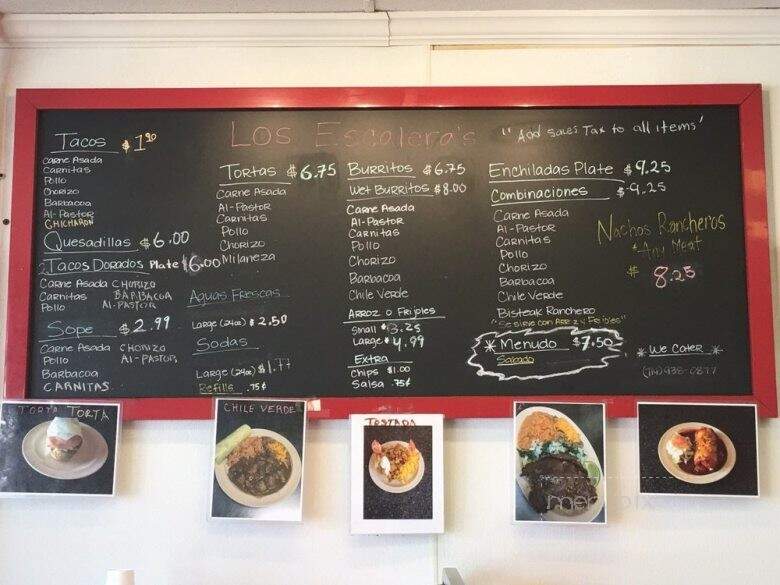 Los Escalera's
"Add Sales Tax to all items"
Tacos $1.90
Carne Asada
Carnitas
Pollo
Chorizo
Barbacoa
Al-Pastor
CHICHARON
Quesadillas $6.00
Tacos Dorados Plate $6.00
Carne Asada CHORIZO
Carnitas BARBACOA
Pollo Al-PASTOR
Sope $2.99
Carne Asada CHORIZO
Pollo Al-PASTOR
Barbacoa
CARNITAS
Tortas $6.75
Carne Asada
Al-Pastor
Carnitas
Pollo
Chorizo
Milaneza
Aguas Frescas
Large (24oz) $2.50
Sodas
Large (24oz) $1.77
Refills .75¢
Burritos $6.75
Wet Burritos $8.00
Carne Asada
Al-Pastor
Carnitas
Pollo
Chorizo
Barbacoa
Chile Verde
Arroz o Frijoles
Small $3.25
Large $4.99
Extra
Chips $1.00
Salsa .75¢
Enchiladas Plate $9.25
Combinaciones $9.25
Carne Asada
Al-Pastor
Carnitas
Pollo
Chorizo
Barbacoa
Chile Verde
Bisteak Ranchero
"Se sirve con Arroz y Frijoles"
* Menudo $7.50
Sabado
Nachos Rancheros
*Any Meat
$ 8.25
* We Cater *
(714)938-0877
TORTA TORTA
CHILE VERDE
TOSTADA